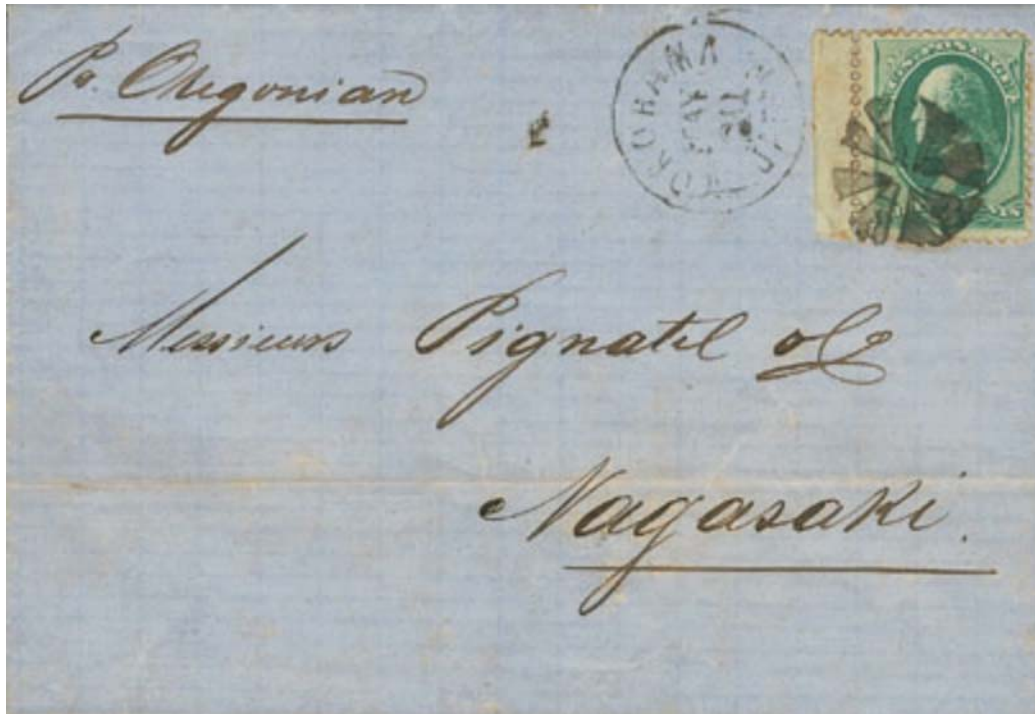 Pr. Oregonian
YOKOHAMA JAPAN
U.S. POSTAGE
Messieurs Pignatel & Co
Nagasaki.